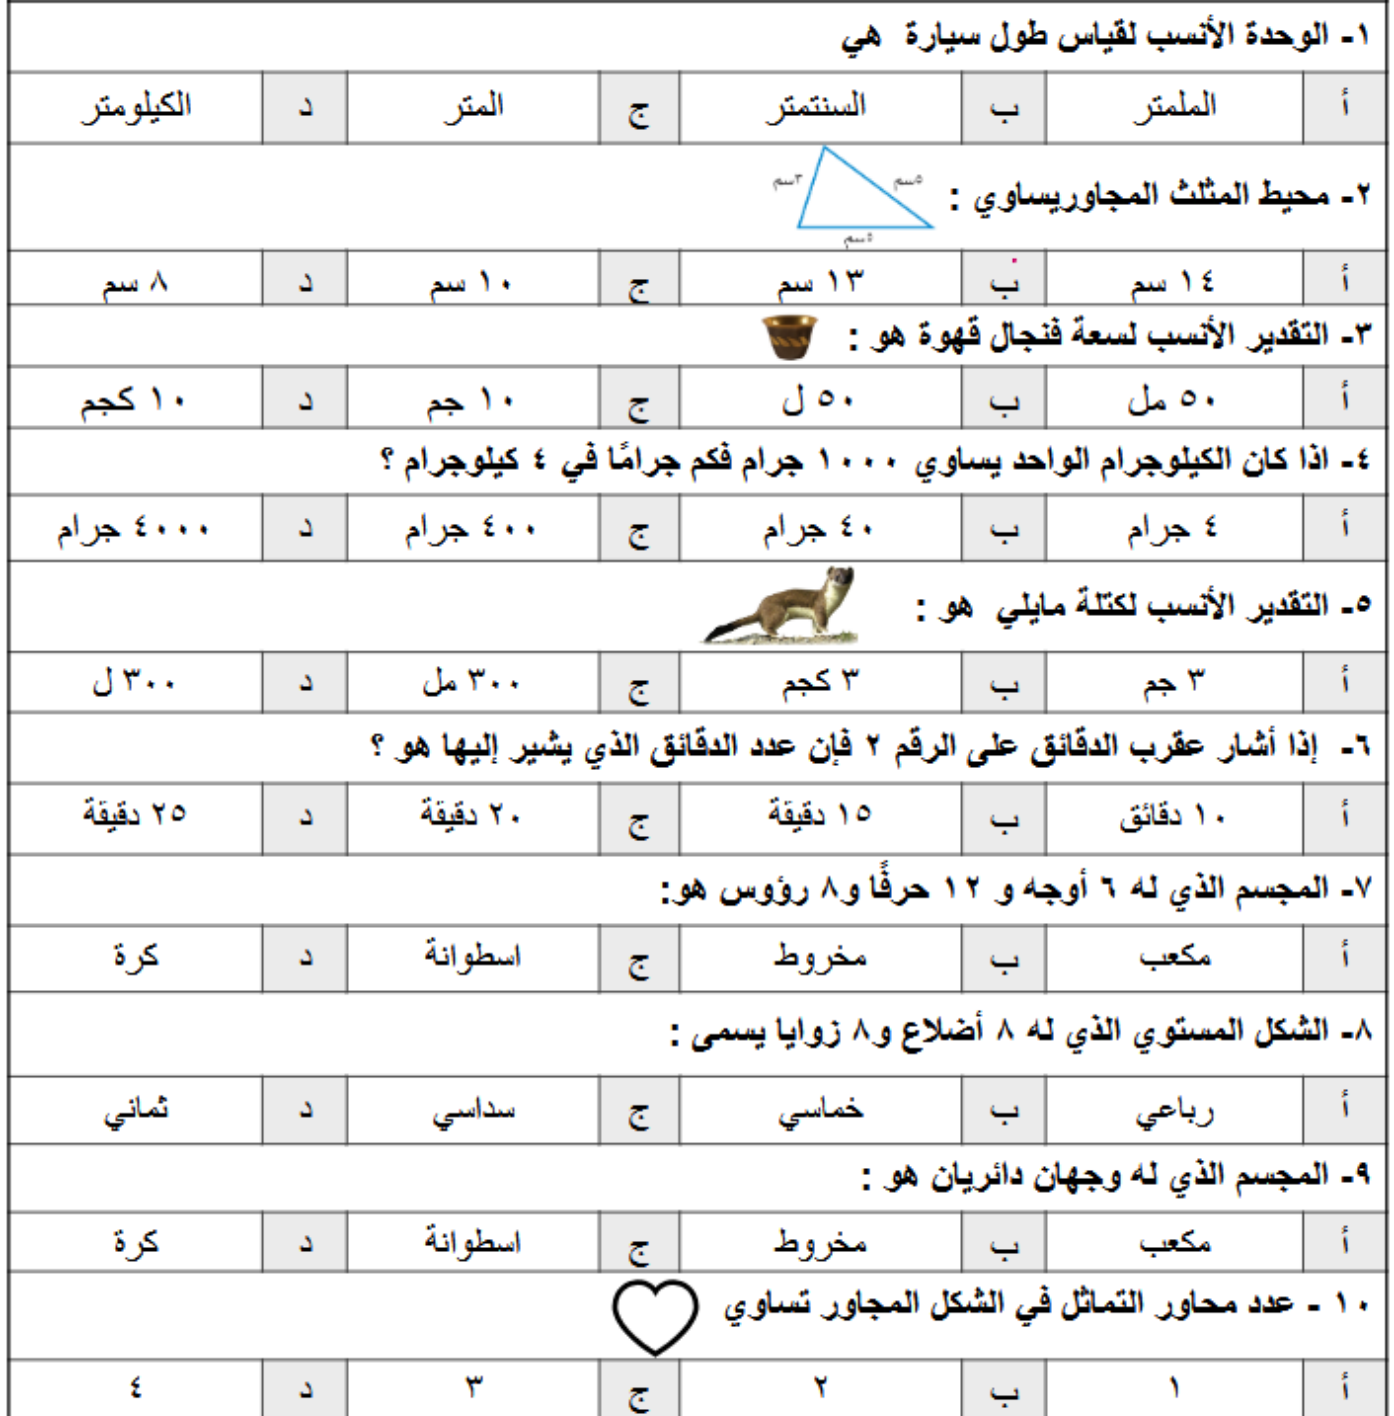 ١- الوحدة الأنسب لقياس طول سيارة هي
أ الملمتر ب السنتمتر ج المتر د الكيلومتر
٢- محيط المثلث المجاوريساوي :
٣سم ٥سم
٥سم
أ ١٤ سم ب ١٣ سم ج ١٠ سم د ٨ سم
٣- التقدير الأنسب لسعة فنجال قهوة هو :
أ ٥٠ مل ب ٥٠ ل ج ١٠ جم د ١٠ كجم
٤- اذا كان الكيلوجرام الواحد يساوي ١٠٠٠ جرام فكم جرامًا في ٤ كيلوجرام ؟
أ ٤ جرام ب ٤٠ جرام ج ٤٠٠ جرام د ٤٠٠٠ جرام
٥- التقدير الأنسب لكتلة مايلي هو :
أ ٣ جم ب ٣ كجم ج ٣٠٠ مل د ٣٠٠ ل
٦- إذا أشار عقرب الدقائق على الرقم ٢ فإن عدد الدقائق الذي يشير إليها هو ؟
أ ١٠ دقائق ب ١٥ دقيقة ج ٢٠ دقيقة د ٢٥ دقيقة
٧- المجسم الذي له ٦ أوجه و ١٢ حرفًا و٨ رؤوس هو:
أ مكعب ب مخروط ج اسطوانة د كرة
٨- الشكل المستوي الذي له ٨ أضلاع و٨ زوايا يسمى :
أ رباعي ب خماسي ج سداسي د ثماني
٩- المجسم الذي له وجهان دائريان هو :
أ مكعب ب مخروط ج اسطوانة د كرة
١٠ - عدد محاور التماثل في الشكل المجاور تساوي
أ ١ ب ٢ ج ٣ د ٤